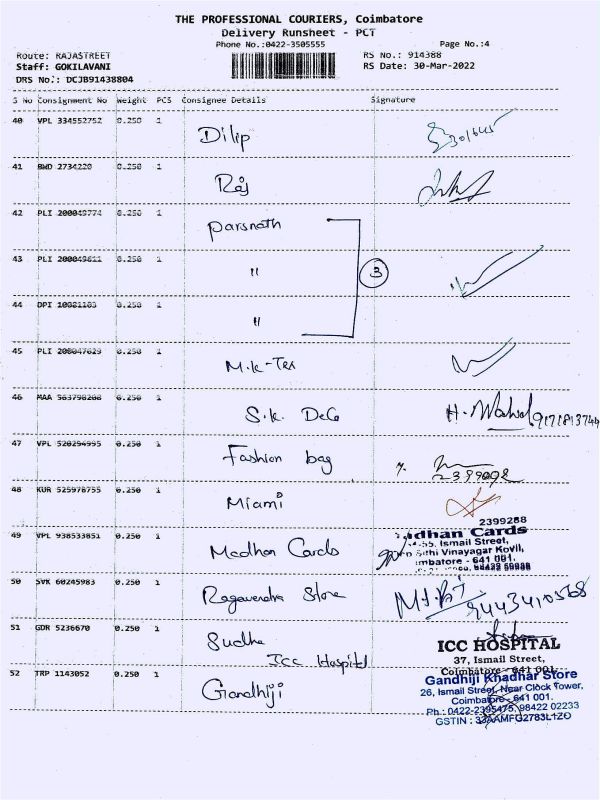 THE PROFESSIONAL COURIERS, Coimbatore
Delivery Runsheet - PCT
Phone No.:0422-3505555
Page No.:4
Route: RAJASTREET
RS No.: 914388
Staff: GOKILAVANI
RS Date: 30-Mar-2022
DRS No.: DCJB91438804
S No Consignment No Weight PCS Consignee Details Signature
40 VPL 334552752 0.250 1 Dilip
41 BWD 2734220 0.250 1 Raj
42 PLI 200049774 0.250 1 Parsnath
43 PLI 200049611 0.250 1 " 3
44 DPI 10081103 0.250 1 "
45 PLI 200047629 0.250 1 M.K-Tex
46 MAA 563798208 0.250 1 S.K. DeCo H.
47 VPL 520294995 0.250 1 Fashion bag
2399098
48 KUR 525978755 0.250 1 Miami
2399288
49 VPL 938533851 0.250 1 Madhan Cards
adhan Cards
Ismail Street,
Sithi Vinayagar Kovil,
mbatore - 641 001.
50 SVK 60245983 0.250 1 Ragavendra Store
9443410568
51 GDR 5236670 0.250 1 Sudha
ICC Hospital
ICC HOSPITAL
37, Ismail Street,
Coimbatore - 641 001.
52 TRP 1143052 0.250 1 Gandhiji
Gandhiji Khadhar Store
26, Ismail Street, Near Clock Tower,
Coimbatore - 641 001.
Ph : 0422-2395475, 98422 02233
GSTIN : 33AAMFG2783L1ZO